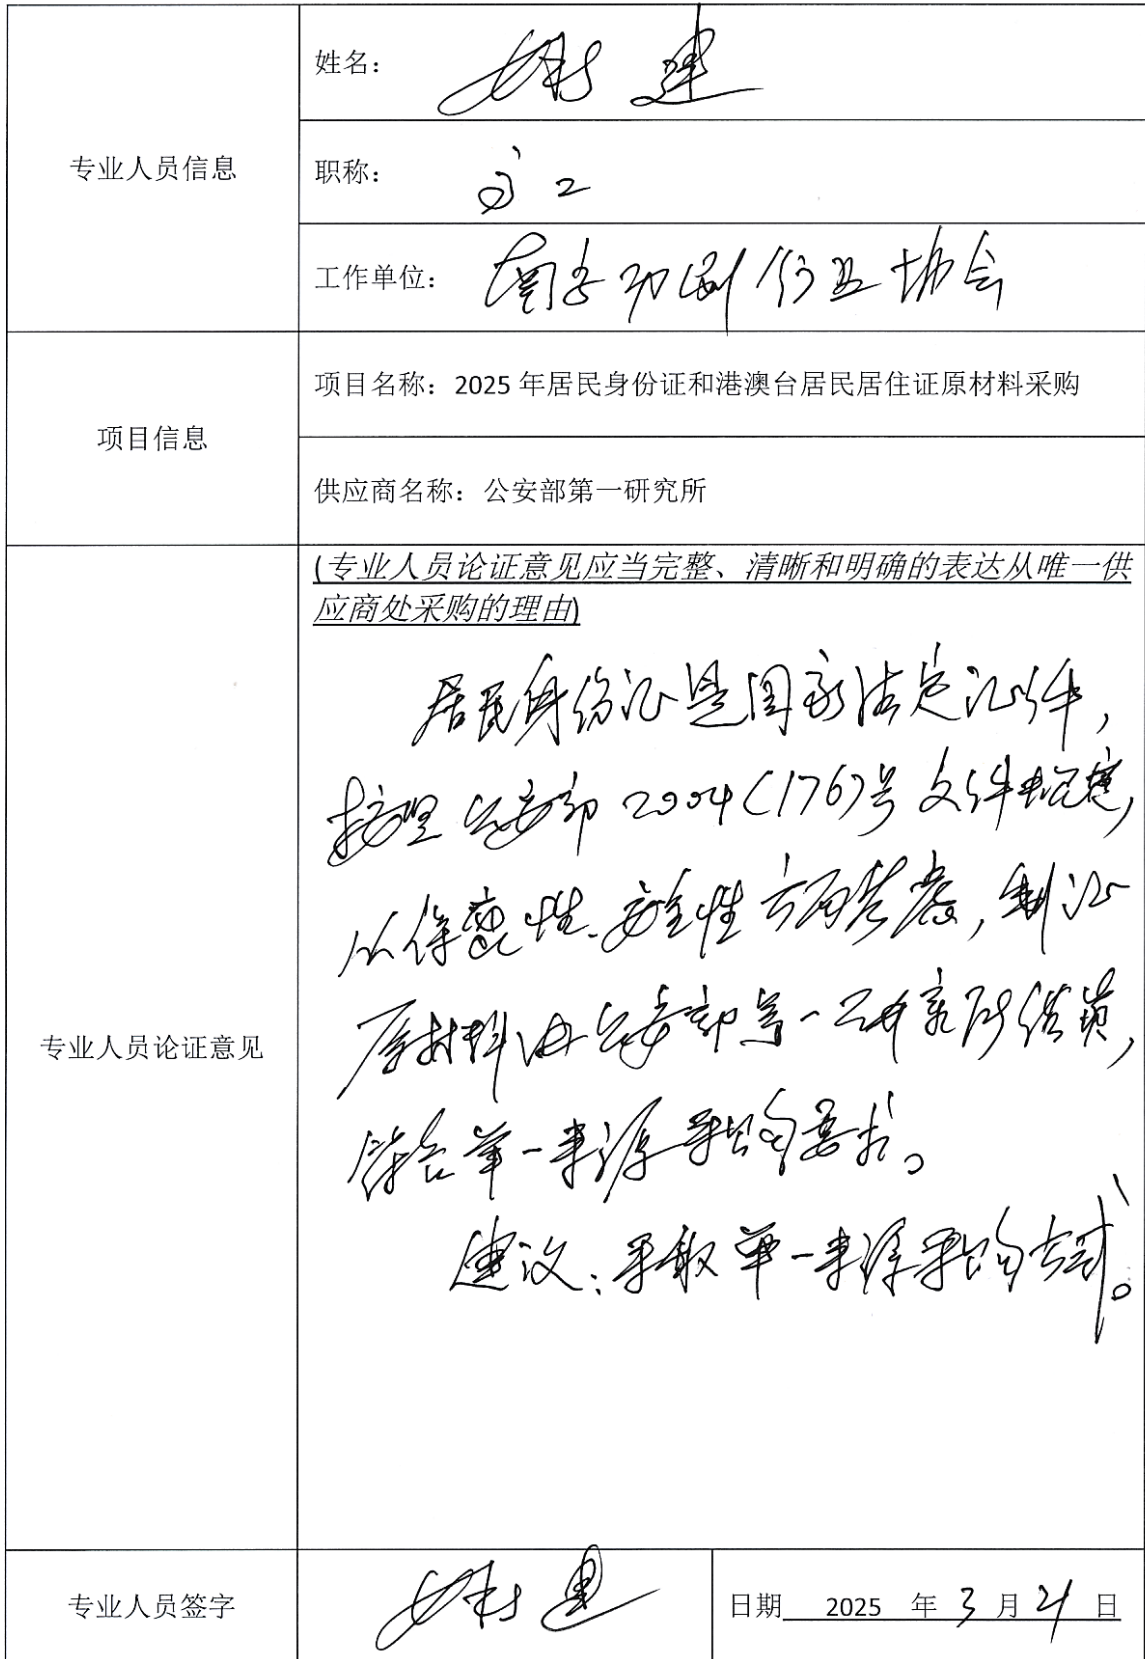 专业人员信息
姓名：
职称：高工
工作单位：南京印刷行业协会
项目信息
项目名称：2025 年居民身份证和港澳台居民居住证原材料采购
供应商名称：公安部第一研究所
专业人员论证意见
(专业人员论证意见应当完整、清晰和明确的表达从唯一供
应商处采购的理由)
居民身份证是国家法定证件，
按照公安部2004(176)号文件规定，
从保密性、安全性方面考虑，制证
原材料由公安部第一研究所供货，
符合单一来源采购要求。
建议：采取单一来源采购方式。
专业人员签字
日期 2025 年 3 月 21 日